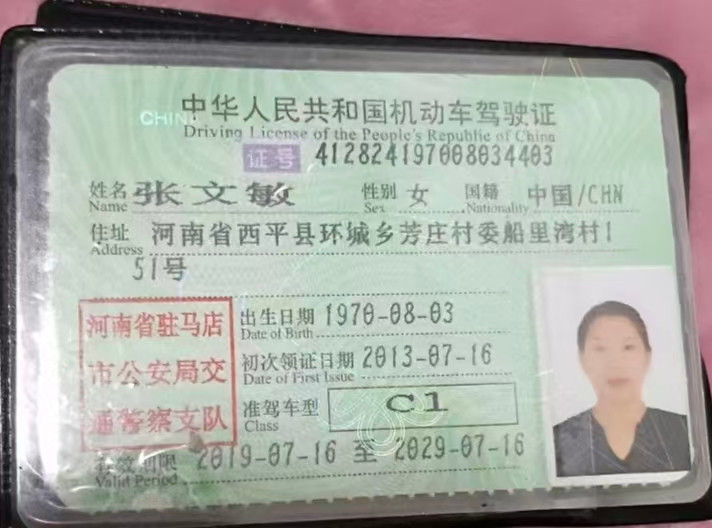 中华人民共和国机动车驾驶证
CHIN
Driving License of the People's Republic of China
证号 412824197008034403
姓名 张文敏 性别 女 国籍 中国/CHN
Name Sex Nationality
住址 河南省西平县环城乡芳庄村委船里湾村1
Address
51号
河南省驻马店
市公安局交
通警察支队
出生日期 1970-08-03
Date of Birth
初次领证日期 2013-07-16
Date of First Issue
准驾车型 C1
Class
有效期限 2019-07-16 至 2029-07-16
Valid Period